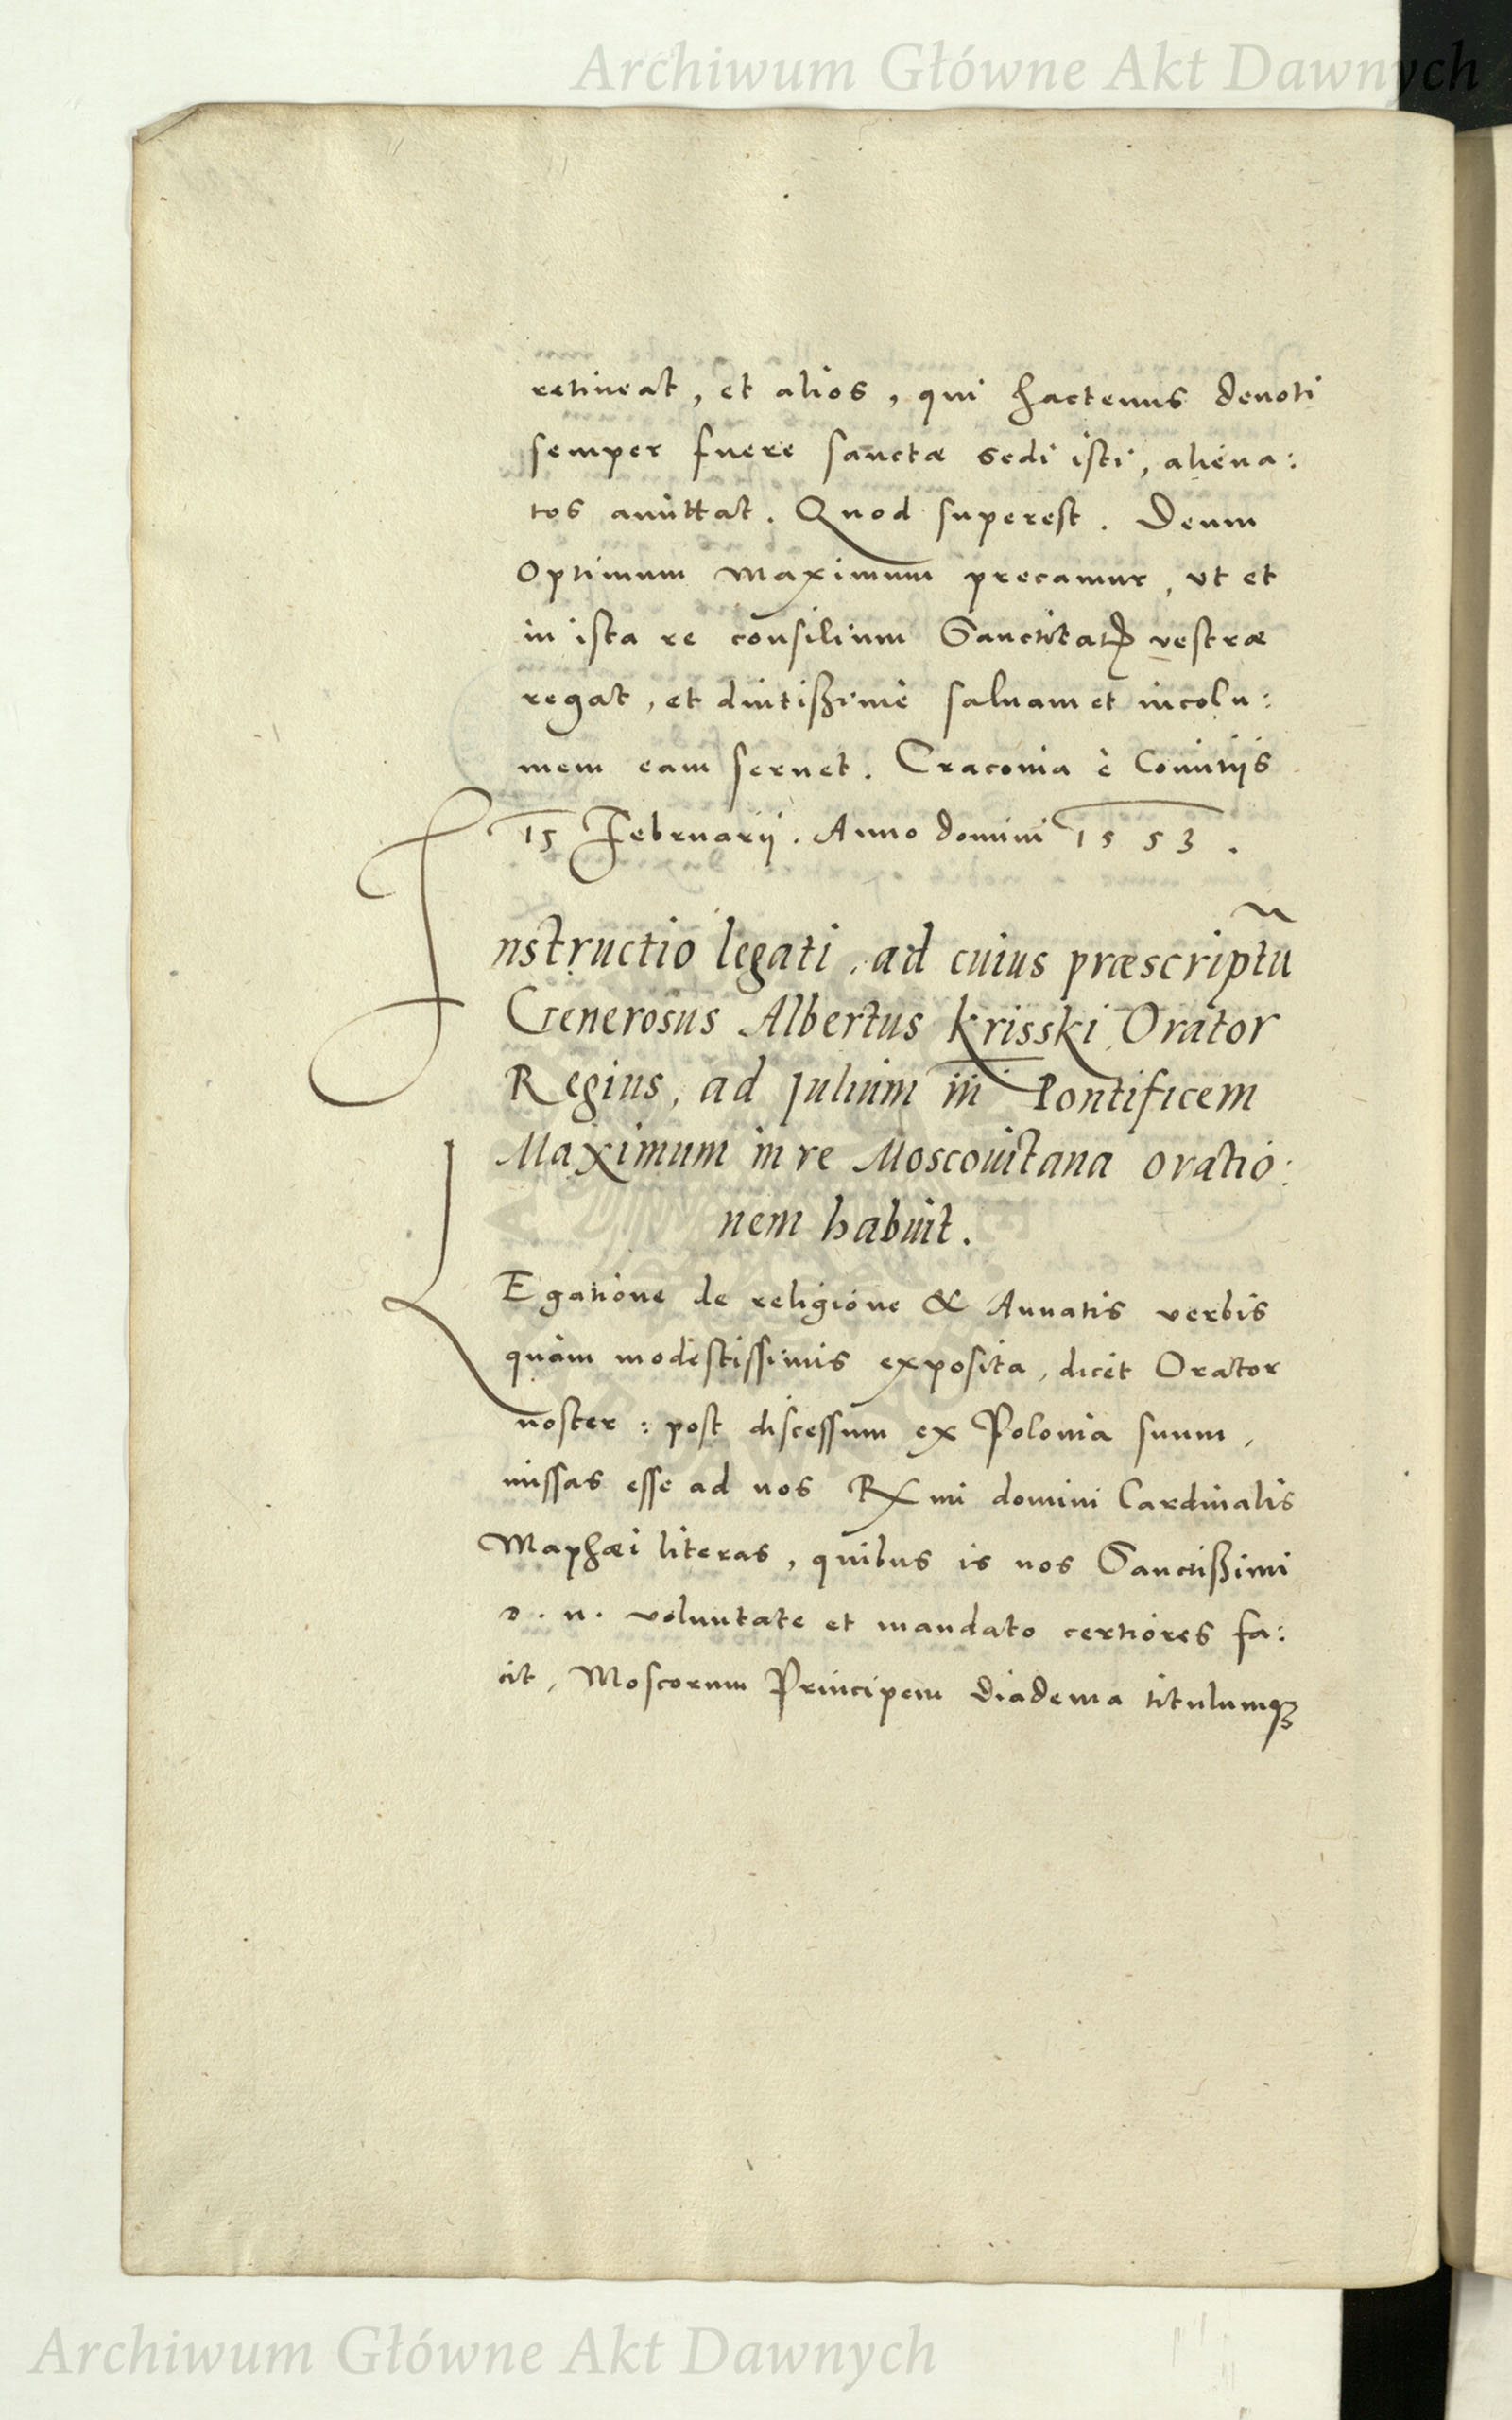 Archiwum Główne Akt Dawnych
retineat, et alios, qui hactenus deuoti
semper fuere sanctæ sedi isti, aliena:
tos amittat. Quod superest. Deum
Optimum Maximum precamur, vt et
in ista re consilium Sanctitatis vestræ
regat, et diutißimè saluam et incolu:
mem eam seruet. Cracouia è Comitiis
15 Februarij. Anno domini 1553.
Instructio legati, ad cuius præscriptũ
Generosus Albertus Krisski Orator
Regius, ad Julium iii Pontificem
Maximum in re Moscouitana oratio:
nem habuit.
LEgatione de religione & Annatis verbis
quàm modestissimis exposita, dicet Orator
noster: post discessum ex Polonia suum,
missas esse ad nos Rmi domini Cardinalis
Maphæi literas, quibus is nos Sanctißimi
D. n. voluntate et mandato certiores fa:
cit, Moscorum Principem diadema titulumqꝫ
Archiwum Główne Akt Dawnych